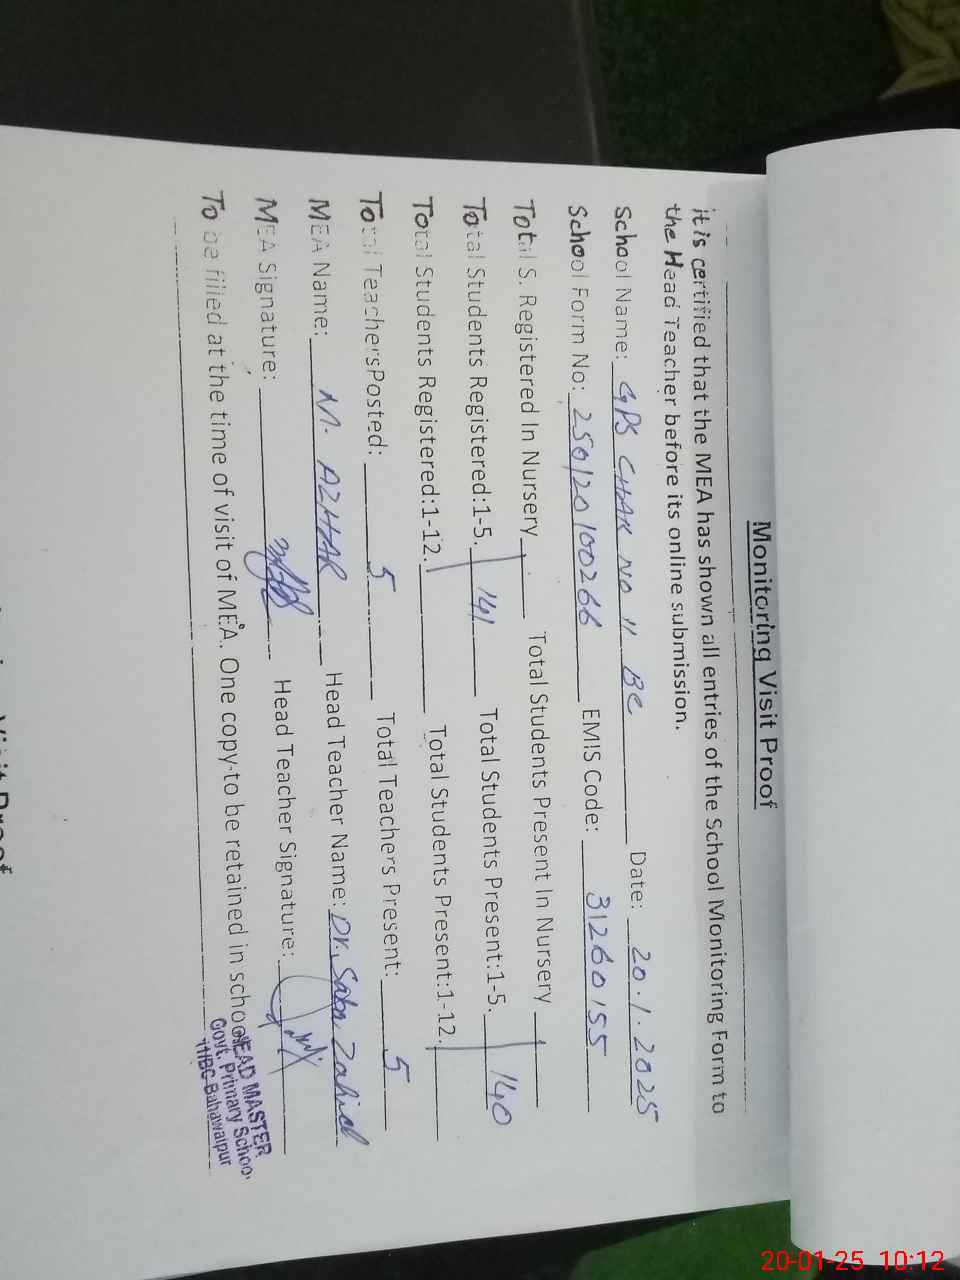 Monitoring Visit Proof
it is certified that the MEA has shown all entries of the School Monitoring Form to
the Head Teacher before its online submission.
School Name: GPS CHAK NO 11 BC Date: 20.1.2025
School Form No: 250120100266 EMIS Code: 31260155
Total S. Registered In Nursery Total Students Present In Nursery
Total Students Registered:1-5. 141 Total Students Present:1-5. 140
Total Students Registered:1-12. Total Students Present:1-12.
Total TeachersPosted: 5 Total Teachers Present: 5
MEA Name: M. AZHAR Head Teacher Name: Dr. Saba Zahid
MEA Signature: Head Teacher Signature:
To be filled at the time of visit of MEA. One copy to be retained in school
HEAD MASTER
Govt. Primary School
11/BC Bahawalpur
20-01-25 10:12